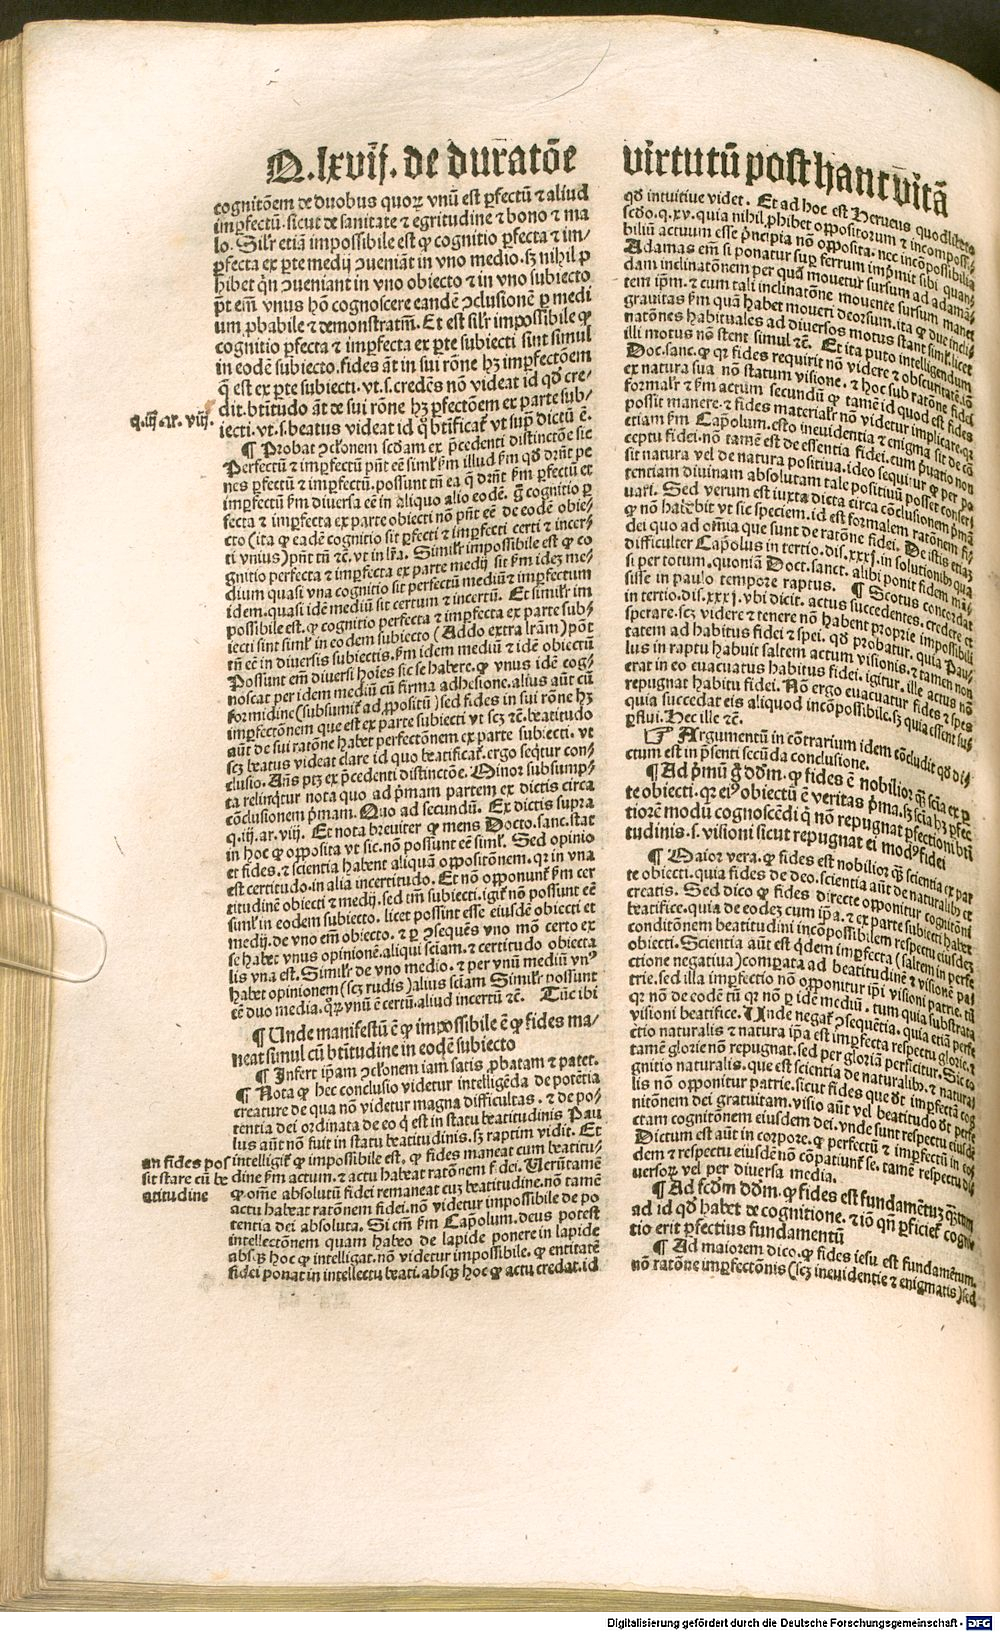 Q.lxvij. de duratõe virtutũ post hanc vitã
cognitõem de duobus quoꝝ vnũ est ꝑfectũ ⁊ aliud
imperfectũ. sicut de sanitate ⁊ egritudine ⁊ bono ⁊ ma
lo. Silr etiã impossibile est ꝙ cognitio ꝑfecta ⁊ im-
ꝑfecta ex ꝑte medij ↄueniãt in vno medio. sꝫ nihil ꝓ
hibet qñ ↄueniant in vno obiecto ⁊ in vno subiecto
põt em̃ vnus hõ cognoscere eandẽ ↄclusionẽ ꝑ medi
um ꝓbabile ⁊ demonstratiũ. Et est silr impossibile ꝙ
cognitio ꝑfecta ⁊ imꝑfecta ex ꝑte subiecti sint simul
in eodẽ subiecto. fides aũt in sui rõne hꝫ imꝑfectõem
q̃ est ex ꝑte subiecti. vt .s. credẽs nõ videat id qđ cre-
dit. btitudo aũt de sui rõne hꝫ ꝑfectõem ex parte sub-
iecti. vt .s. beatus videat id q̊ btificat᷑ vt supͣ dictũ ẽ.
q.iij.ar. viij.
¶ Probat ↄclonem scđam ex p̃cedenti distinctõe sic
Perfectũ ⁊ imꝑfectũ pñt eẽ siml̕ ẜm illud ẜm qđ dr̃nt pe
nes ꝑfectũ ⁊ imꝑfectũ. possunt tñ ea q̃ dr̃nt ẜm ꝑfectũ et
imꝑfectũ ẜm diuersa eẽ in aliquo alio eodẽ. g̊ cognitio ꝑ
fecta ⁊ imꝑfecta ex parte obiecti nõ pñt eẽ de eodẽ obie-
cto (ita ꝙ eadẽ cognitio sit ꝑfecti ⁊ imꝑfecti certi ⁊ incer-
ti vnius) pñt tñ ⁊c̃. vt in lr̃a. Simil̕r impossibile est ꝙ co
gnitio perfecta ⁊ imꝑfecta ex parte medij sit ẜm idez me-
dium quasi vna cognitio sit perfectũ mediũ ⁊ imperfectum
idem. quasi idẽ mediũ sit certum ⁊ incertũ. Et simil̕r im
possibile est. ꝙ cognitio perfecta ⁊ imperfecta ex parte sub-
iecti sint siml̕ in eodem subiecto (Addo extra lr̃am) põt
tñ eẽ in diuersis subiectis. ẜm idem mediũ ⁊ idẽ obiectũ
Possunt em̃ diuersi hoĩes sic se habere. ꝙ vnus idẽ cog-
noscat per idem mediũ cũ firma adhesione. alius aũt cũ
formidine (subsumit᷑ ad ꝓpositũ) sed fides in sui rõne hꝫ
imꝑfectõnem que est ex parte subiecti vt scꝫ ⁊c̃. beatitudo
aũt de sui ratõne habet perfectõnem ex parte subiecti. vt
scꝫ beatus videat clare id quo beatificat᷑. ergo seq̃tur con-
clusio. Añs ptꝫ ex p̃cedenti distinctõe. Minor subsump-
ta relinq̃tur nota quo ad p̃mam partem ex dictis circa
cõclusionem p̃mam. Quo ad secundũ. Ex dictis supra
q.iij.ar.viij. Et nota breuiter ꝙ mens Docto.sanc. stat
in hoc ꝙ opposita vt sic. nõ possunt eẽ siml̕. Sed opinio
et fides. ⁊ scientia habent aliquã oppositõnem. qr in vna
est certitudo. in alia incertitudo. Et nõ opponunt᷑ ẜm cer
titudinẽ obiecti ⁊ medij. sed tm̃ subiecti. igit᷑ nõ possunt eẽ
siml̕ in eodem subiecto. licet possint esse eiusdẽ obiecti et
medij. de vno em̃ obiecto. ⁊ ꝑ ↄsequẽs vno mõ certo ex
se habet vnus opinionẽ. aliqui sciam̃. ⁊ certitudo obiecta
lis vna est. Simil̕r de vno medio. ⁊ per vnũ mediũ vnꝰ
habet opinionem (scꝫ rudis) alius sciam̃ Simil̕r possunt
eẽ duo media. q̊ꝝ vnũ ẽ certũ. aliud incertũ ⁊c̃. Tũc ibi
¶ Unde manifestũ ẽ ꝙ impossibile ẽ ꝙ fides ma-
neat simul cũ btitudine in eodẽ subiecto
¶ Infert ip̃am ↄclonem iam satis ꝓbatam ⁊ patet.
¶ Nota ꝙ hec conclusio videtur intelligẽda de potẽtia
creature de qua nõ videtur magna difficultas. ⁊ de po-
tentia dei ordinata de eo q̊ est in statu beatitudinis Pau
lus aũt nõ fuit in statu beatitudinis. sꝫ raptim vidit. Et
an fides pos
sit stare cũ be
atitudine
intelligit᷑ ꝙ impossibile est, ꝙ fides maneat cum beatitu-
dine ẜm actum. ⁊ actu habeat ratõnem fidei. Uerũtamẽ
ꝙ om̃e absolutũ fidei remaneat cuz beatitudine. nõ tamẽ
actu habeat ratõnem fidei. nõ videtur impossibile de po
tentia dei absoluta. Si em̃ ẜm Cap̃olum. deus potest
intellectõnem quam habeo de lapide ponere in lapide
absqꝫ hoc ꝙ intelligat. nõ videtur impossibile. ꝙ entitatẽ
fidei ponat in intellectu beati. absqꝫ hoc ꝙ actu credat. id
qđ intuitiue videt. Et ad hoc est Herueus quodlibeto
scđo.q.xv. quia nihil ꝓhibet oppositorum ⁊ incompossi-
biliũ actuum esse p̃ncipia nõ opposita. nec incõpossibilia
Adamas em̃ si ponatur suꝑ ferrum imp̃mit sibi quan-
dam inclinatõnem per quã mouetur sursum ad adamã-
tem ip̃m. ⁊ cum tali inclinatõne mouente sursum manet
grauitas ẜm quã habet moueri deorsum. ita ꝙ due incli-
natõnes habituales ad diuersos motus stant siml̕. licet
illi motus nõ stent simul ⁊c̃. Et ita puto intelligendum
Doc.sanc. ꝙ qr fides requirit nõ videre ⁊ obscuritatẽ. iõ
ex natura sua nõ statum visione. ⁊ hoc sub ratõne fidei
formalr ⁊ ẜm actum secundũ ꝙ tamẽ id quod est fides
possit manere. ⁊ fides materialr nõ videtur implicare. qr
etiam ẜm Cap̃olum. esto ineuidentia ⁊ enigma sit de cõ
ceptu fidei. nõ tamẽ est de essentia fidei. cum p̃uatio non
sit natura vel de natura positiua. ideo sequitur ꝙ per po
tentiam diuinam absolutam tale positiuũ posset conser
uari. Sed verum est iuxta dicta circa cõclusionem p̃mã
ꝙ nõ haberbit vt sic speciem. id est formalem ratõnem fi-
dei quo ad om̃ia que sunt de ratõne fidei. De istis etiaz
difficulter Cap̃olus in tertio.dis.xxxj. in solutionibꝰ qua
si per totum. quoniã Doct.sanct. alibi ponit fidem mã-
sisse in paulo tempore raptus. ¶ Scotus concordat
in tertio.dis.xxxj. vbi dicit. actus succedentes. credere et
sperare. scꝫ videre ⁊ tenere nõ habent proprie impossibili
tatem ad habitus fidei ⁊ spei. qđ probatur. quia Pau-
lus in raptu habuit saltem actum visionis. ⁊ tamen non
erat in eo euacuatus habitus fidei. igitur. ille actus nõ
repugnat habitu fidei. Nõ ergo euacuatur fides ⁊ spes
quia succedat eis aliquod incõpossibile. sꝫ quia essent suꝑ
ꝑflui. Hec ille ⁊c̃.
☞ Argumentũ in cõtrarium idem cõcludit qđ di-
ctum est in p̃senti secũda conclusione.
¶ Ad p̃mũ g̊ dđm. ꝙ fides ẽ nobilior q̃ꝫ scia ex ꝑ
te obiecti. qr eiꝰ obiectũ ẽ veritas p̃ma. sꝫ scia hꝫ ꝑfec
tiorẽ modũ cognoscẽdi q̃ nõ repugnat ꝑfectioni bti
tudinis .s. visioni sicut repugnat ei modꝰ fidei
¶ Maior vera. ꝙ fides est nobilior q̃ꝫ scientia ex par
te obiecti. quia fides de deo. scientia aũt de naturalibꝰ et
creatis. Sed dico ꝙ fides directe opponitur cognitõni
beatifice. quia de eodez cum ip̃a. ⁊ ex parte subiecti habet
conditõnem beatitudini incõpossibilem respectu eiusdez
obiecti. Scientia aũt est q̃dem imꝑfecta (saltem in perfe
ctione negatiua) comꝑata ad beatitudinẽ ⁊ visionẽ pa-
trie. sed illa imꝑfectio nõ opponitur ip̃i visioni patrie. tũ
qr nõ de eodẽ tũ qr nõ ꝑ idẽ mediũ. tum quia substrata
visioni beatifice. Unde negat᷑ ↄsequẽtia. quia etiã perfe
ctio naturalis ⁊ natura ip̃a est imꝑfecta respectu glorie. ⁊
tamẽ glorie nõ repugnat. sed per gloriã perficitur. Sic co
gnitio naturalis. que est scientia de naturalibꝰ. ⁊ natura-
lis nõ opponitur patrie. sicut fides que đt imꝑfectã cog
nitõnem dei gratuitam. visio aũt vel beatitudo đt perfe
ctam cognitõnem eiusdem dei. vnde sunt respectu eiusdẽ
Dictum est aũt in corpore. ꝙ perfectũ ⁊ imperfectũ in eo-
dem ⁊ respectu eiusdẽ nõ cõpatiunt᷑ se. tamẽ respectu di-
uersoꝝ vel per diuersa media.
¶ Ad scđm dđm. ꝙ fides est fundamẽtuz q̃ꝫtum
ad id qđ habet de cognitione. ⁊ iõ qñ ꝑficiet᷑ cogni-
tio erit ꝑfectius fundamentũ
¶ Ad maiorem dico. ꝙ fides iesu est fundamẽtum.
nõ ratõne imꝑfectõnis (scꝫ ineuidentie ⁊ enigmatis) sed
Digitalisierung gefördert durch die Deutsche Forschungsgemeinschaft - DFG